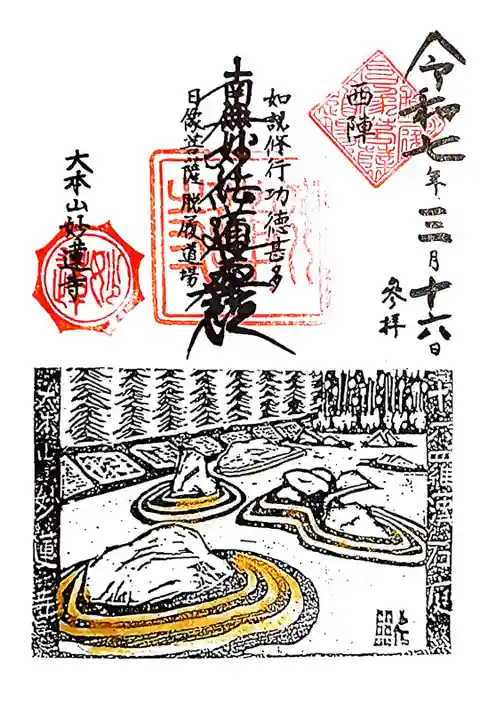 令和七年三月十六日
参拝
西陣
如説修行功徳甚多
南無妙法蓮華経
日像菩薩脱履道場
大本山妙蓮寺
十六羅漢石庭
大本山妙蓮寺